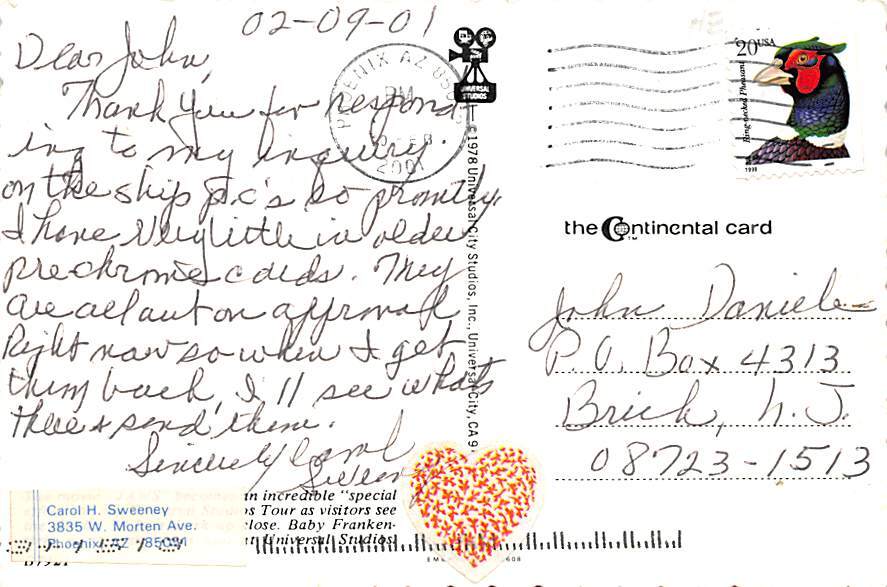 02-09-01
Dear John,
Thank you for respond-
ing to my inquiry
on the ship p.c's so promptly.
I have very little in older
prechrome cards. They
are all out on approval
Right now so when I get
them back, I'll see whats
there & send them.
Sincerely Carol
Sweeney
PHOENIX AZ 850
PM
FEB
2001
UNIVERSAL
STUDIOS
©1978 Universal City Studios, Inc., Universal City, CA 9
20 USA
Ring-necked Pheasant
1998
the Continental card
TM
John Daniele
P.O. Box 4313
Brick, N.J.
08723-1513
Carol H. Sweeney
3835 W. Morten Ave.
Phoenix AZ 85051
an incredible "special
s Tour as visitors see
close. Baby Franken-
at Universal Studios.